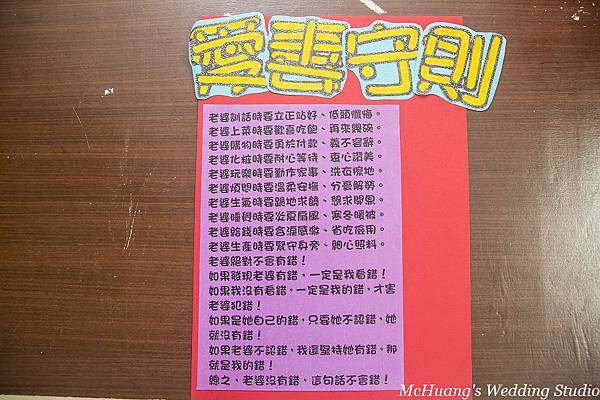 愛妻守則
老婆訓話時要立正站好、低頭懺悔。
老婆上菜時要歡喜吃飽、再來親碗。
老婆購物時要勇於付款、義不容辭。
老婆化粧時要耐心等待、衷心讚美。
老婆玩樂時要勤作家事、洗衣擦地。
老婆煩悶時要溫柔安撫、分憂解勞。
老婆生氣時要跪地求饒、懇求開恩。
老婆睡覺時要炎夏扇風、寒冬暖被。
老婆給錢時要含淚感激、省吃儉用。
老婆生產時要緊守身旁、細心照料。
老婆絕對不會有錯！
如果發現老婆有錯，一定是我看錯！
如果我沒有看錯，一定是我的錯，才害
老婆犯錯！
如果是她自己的錯，只要她不認錯，她
就沒有錯！
如果老婆不認錯，我還堅持她有錯，那
就是我的錯！
總之，老婆沒有錯，這句話不會錯！
McHuang's Wedding Studio